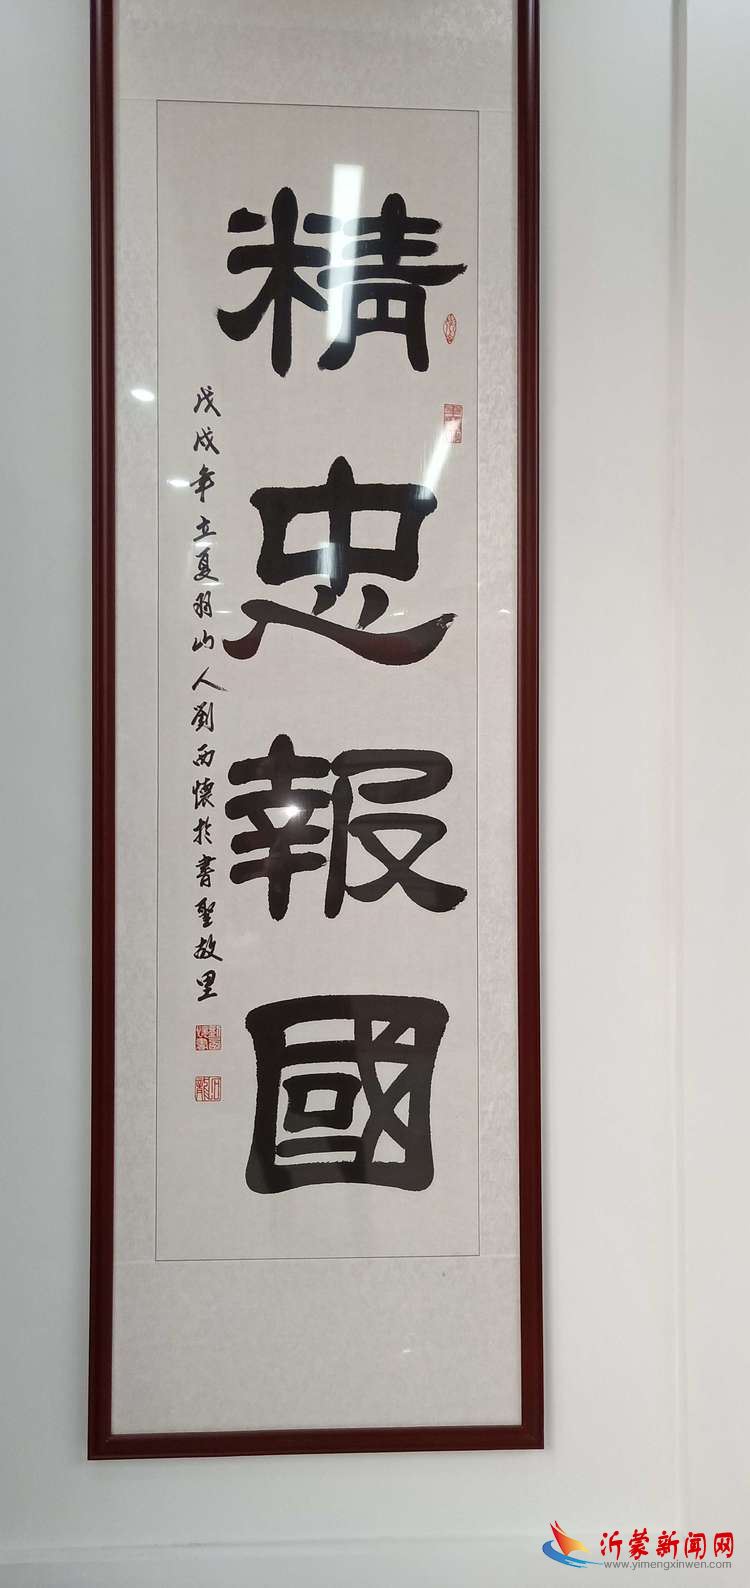 精忠報國
戊戌年立夏羽山人劉西懷於書聖故里
沂蒙新闻网
www.yimengxinwen.com